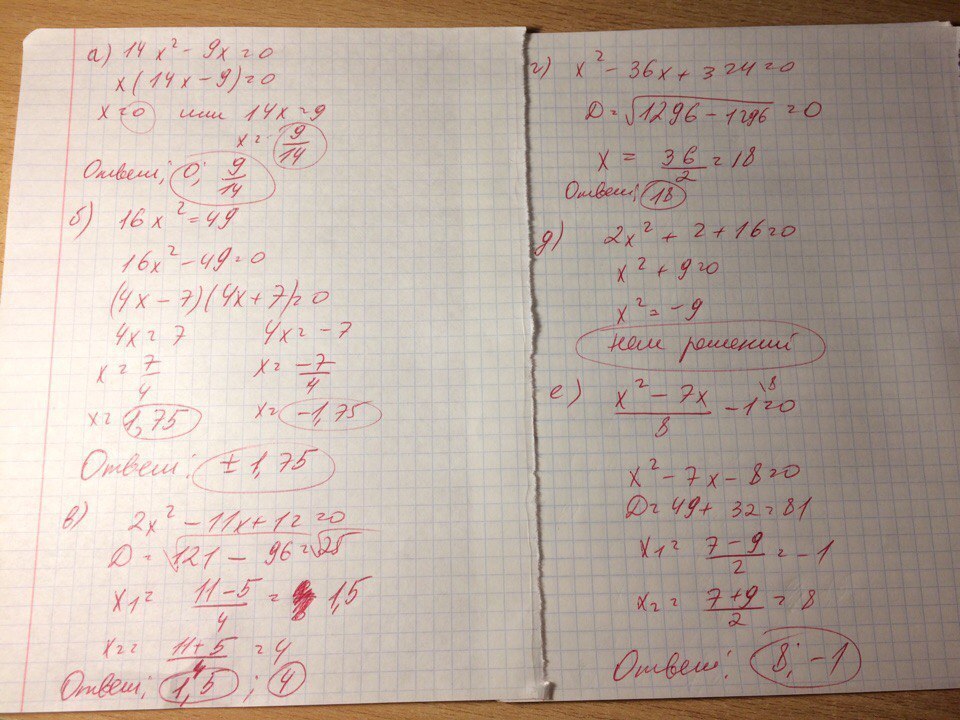 а) 14x² - 9x = 0
x(14x - 9) = 0
x = 0 или 14x = 9
x = 9/14
Ответ; 0; 9/14
б) 16x² = 49
16x² - 49 = 0
(4x - 7)(4x + 7) = 0
4x = 7 4x = -7
x = 7/4 x = -7/4
x = 1,75 x = -1,75
Ответ: ± 1,75
в) 2x² - 11x + 12 = 0
D = √121 - 96 = √25
x1 = 11 - 5/4 = 1,5
x2 = 11 + 5/4 = 4
Ответ; 1,5 ; 4
г) x² - 36x + 324 = 0
D = √1296 - 1296 = 0
x = 36/2 = 18
Ответ; 18
д) 2x² + 2 + 16 = 0
x² + 9 = 0
x² = -9
нет решений
е) x² - 7x/8 - 1\8 = 0
x² - 7x - 8 = 0
D = 49 + 32 = 81
x1 = 7 - 9/2 = -1
x2 = 7 + 9/2 = 8
Ответ: 8; -1